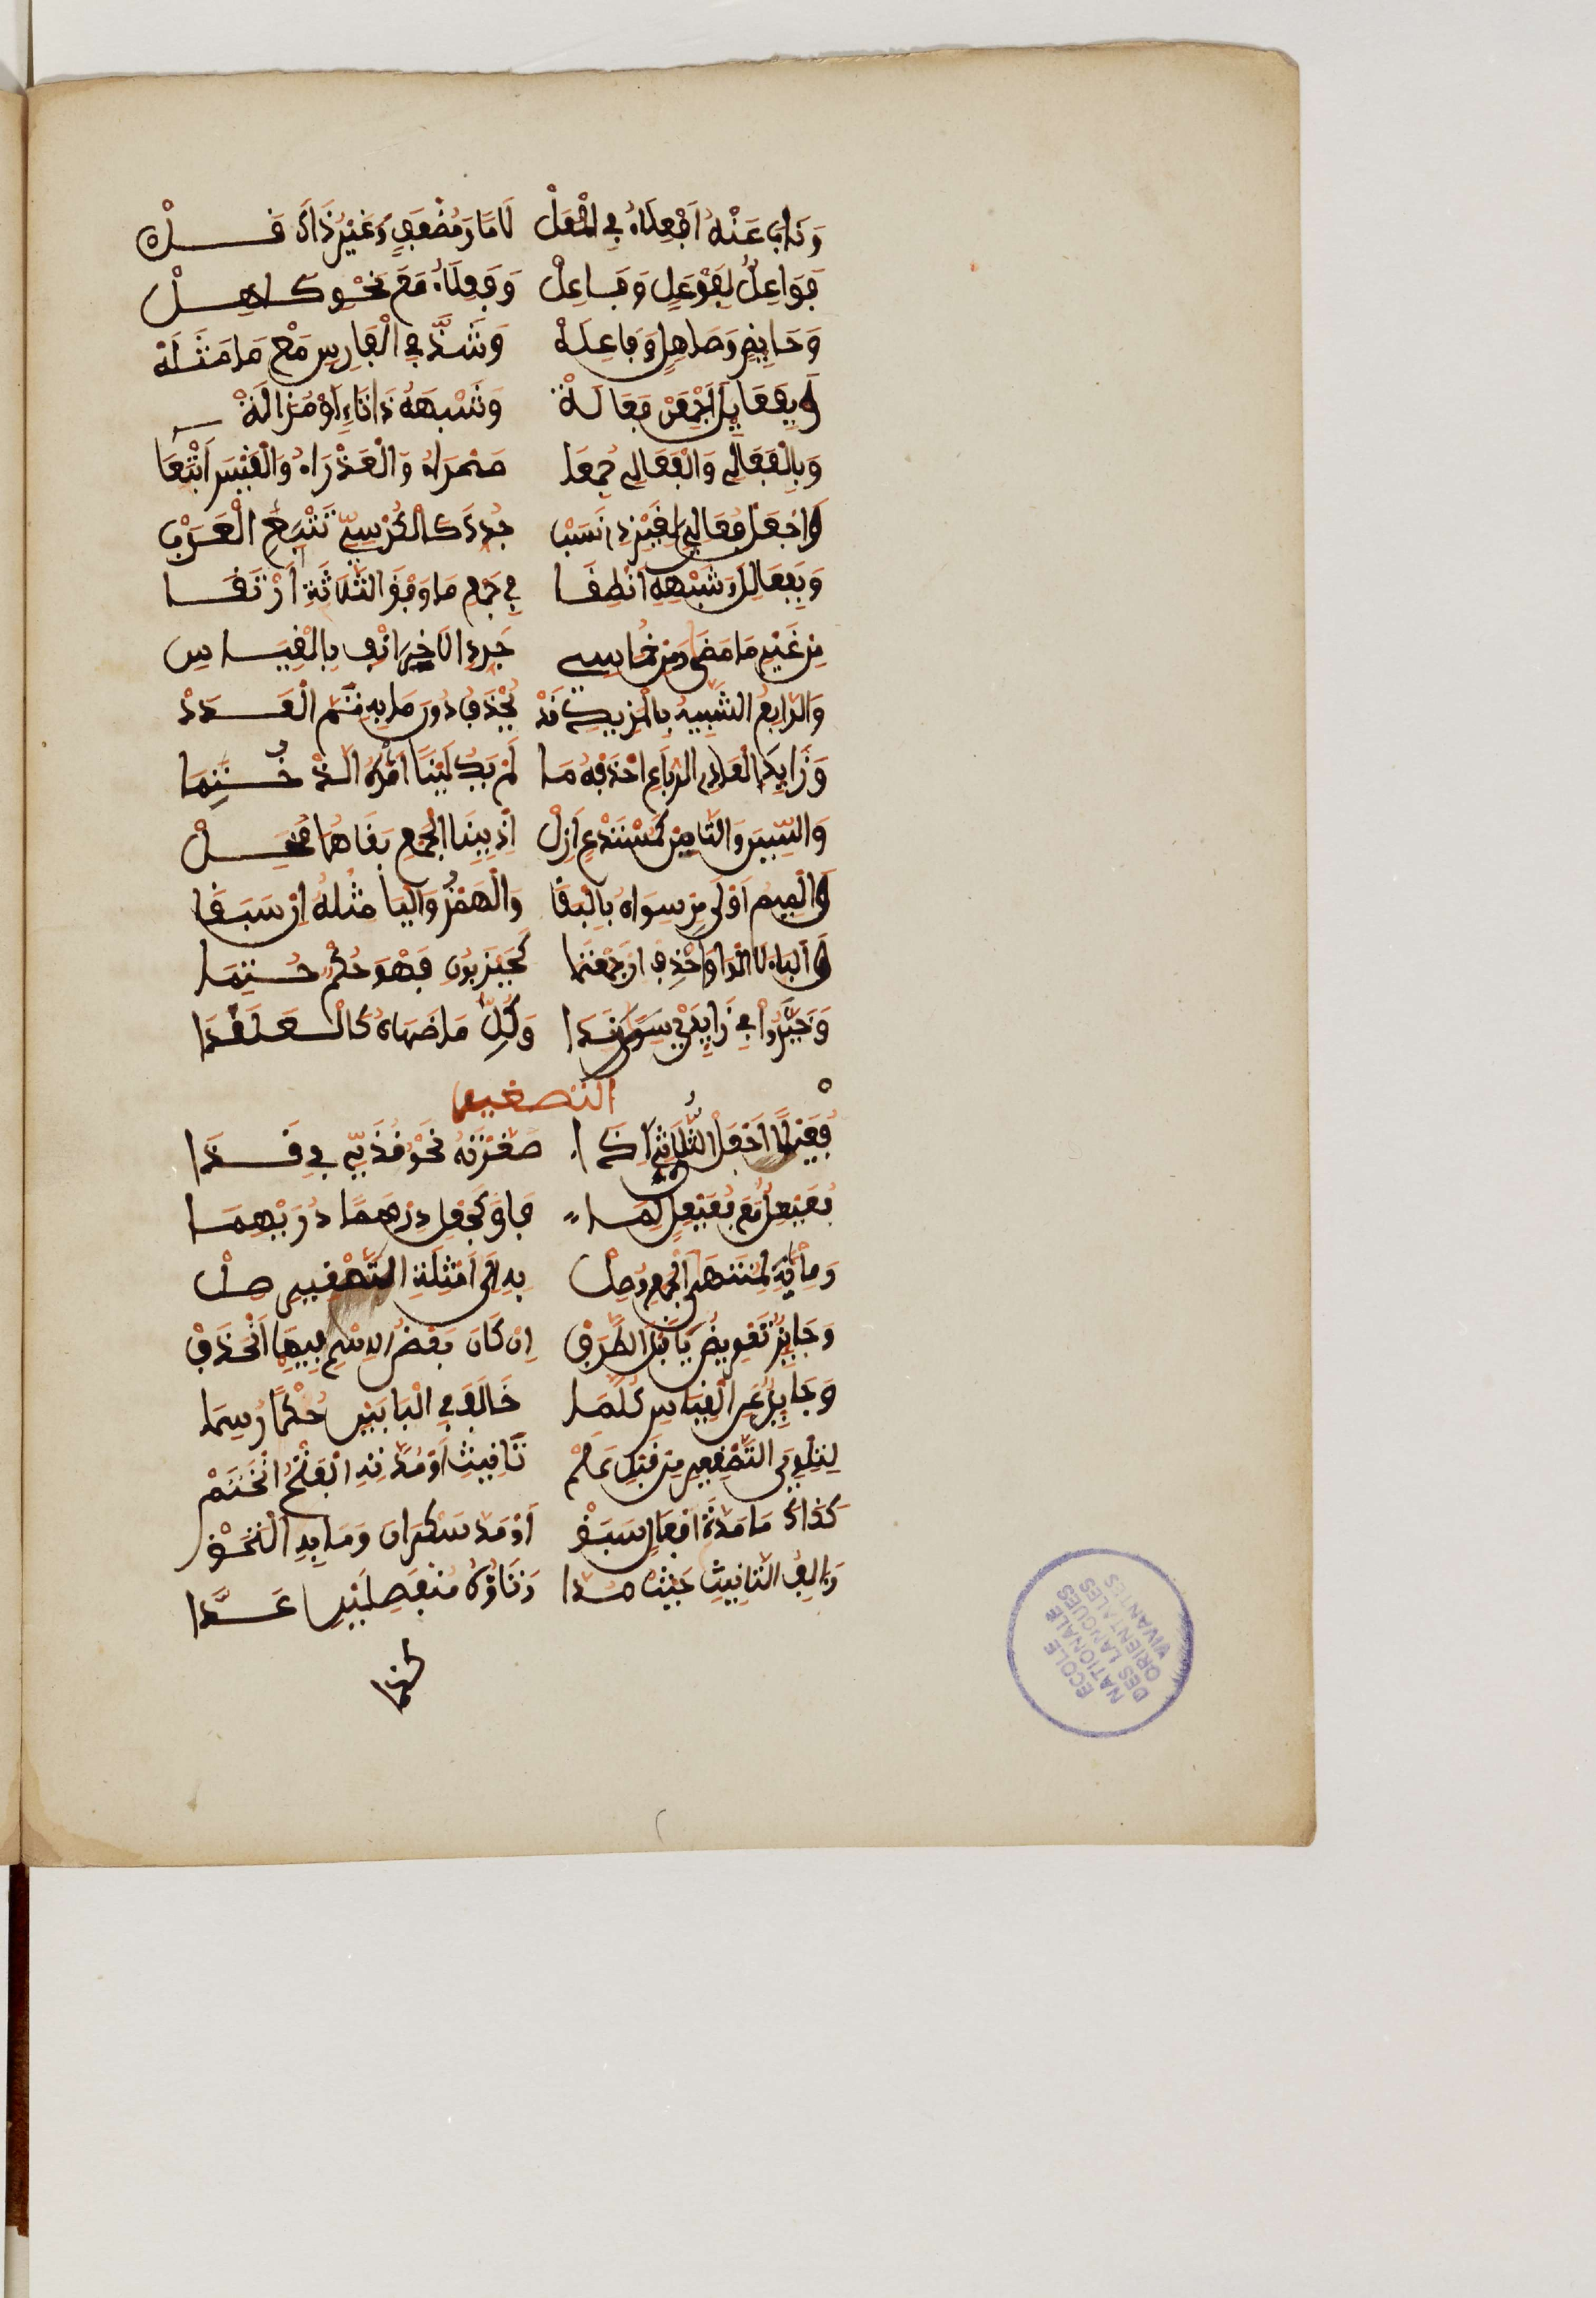 وَنَابَ عَنْهُ أَفْعِلَاءُ فِي الْمُعَلْ لَامًا وَمُضْعَفٍ وَغَيْرُ ذَاكَ قَلْ
فَوَاعِلٌ لِفَوْعَلٍ وَفَاعِلْ وَفَاعِلَاءَ مَعَ نَحْوِ كَاهِلْ
وَحَايِضٍ وَصَاهِلٍ وَفَاعِلَهْ وَشَذَّ فِي الْفَارِسِ مَعْ مَا مَثَلَهْ
وَبِفَعَايِلَ اجْمَعَنْ فَعَالَهْ وَشَبْهَهُ ذَا تَاءٍ أَوْ مُزَالَهْ
وَبِالْفَعَالِي وَالْفَعَالَى جُمِعَا صَحْرَاءُ وَالْعَذْرَاءُ وَالْقَيْسَ اتْبَعَا
وَاجْعَلْ فَعَالِيَّ لِغَيْرِ ذِي نَسَبْ جُدِّدَ كَالْكُرْسِيِّ تَتْبَعِ الْعَرَبْ
وَبِفَعَالِلَ وَشَبْهِهِ انْطِقَا فِي جَمْعِ مَا فَوْقَ الثَّلَاثَةِ ارْتَقَا
مِنْ غَيْرِ مَا مَضَى وَمِنْ خُمَاسِي جُرِّدَ الْآخِرَ انْفِ بِالْقِيَاسِ
وَالرَّابِعُ الشَّبِيهُ بِالْمَزِيدِ قَدْ يُحْذَفُ دُونَ مَا بِهِ تَمَّ الْعَدَدْ
وَزَايِدَ الْعَادِي الرُّبَاعِي احْذِفْهُ مَا لَمْ يَكُ لَيْنًا اثْرَهُ الَّذْ خُتِمَا
وَالسِّينَ وَالتَّا مِنْ كَمُسْتَدْعٍ أَزِلْ إِذْ بِبِنَا الْجَمْعِ بَقَاهُمَا مُخِلْ
وَالْمِيمُ أَوْلَى مِنْ سِوَاهُ بِالْبَقَا وَالْهَمْزُ وَالْيَا مِثْلُهُ إِنْ سَبَقَا
وَالْيَاءَ لَا الْوَاوَ احْذِفِ انْ جَمَعْتَ مَا كَحَيْزَبُونٍ فَهْوَ حُكْمٌ حُتِمَا
وَخَيَّرُوا فِي زَايِدَيْ سَرَنْدَا وَكُلِّ مَا ضَاهَاهُ كَالْعَلَنْدَا
التصغير
فُعَيْلًا اجْعَلِ الثُّلَاثِيَّ إِذَا صَغَّرْتَهُ نَحْوُ قُذَيٍّ فِي قَذَا
فُعَيْعِلٌ مَعَ فُعَيْعِيلٍ لِمَا فَاقَ كَجَعْلِ دِرْهَمٍ دُرَيْهِمَا
وَمَا بِهِ لِمُنْتَهَى الْجَمْعِ وُصِلْ بِهِ إِلَى أَمْثِلَةِ التَّصْغِيرِ صِلْ
وَجَايِزٌ تَعْوِيضُ يَا قَبْلَ الطَّرَفْ إِنْ كَانَ بَعْضُ الِاسْمِ فِيهِمَا انْحَذَفْ
وَحَايِدٌ عَنِ الْقِيَاسِ كُلُّ مَا خَالَفَ فِي الْبَابَيْنِ حُكْمًا رُسِمَا
لِتِلْوِ يَا التَّصْغِيرِ مِنْ قَبْلِ عَلَمْ تَأْنِيثٍ أَوْ مَدَّتِهِ الْفَتْحُ انْحَتَمْ
كَذَاكَ مَا مَدَّةَ أَفْعَالٍ سَبَقْ أَوْ مَدَّ سَكْرَانَ وَمَا بِهِ الْتَحَقْ
وَأَلِفُ التَّأْنِيثِ حَيْثُ مُدَّا وَتَاؤُهُ مُنْفَصِلَيْنِ عُدَّا
كذا
ECOLE
NATIONALE
DES LANGUES
ORIENTALES
VIVANTES